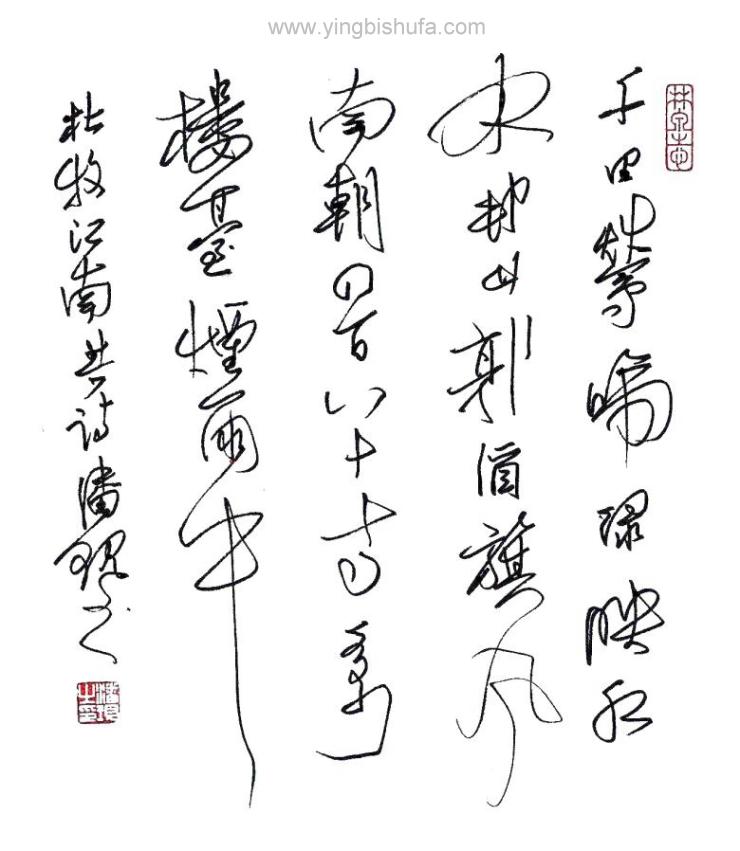 www.yingbishufa.com
千里鶯啼綠映紅
水村山郭酒旗風
南朝四百八十寺多少
樓臺煙雨中
杜牧江南春詩潘書